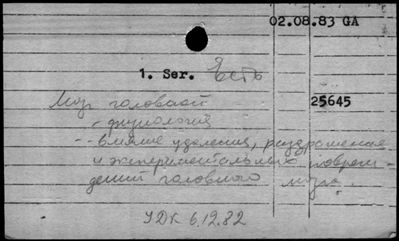 02.08.83 GA
1. Ser. Есть
Мозг головной
25645
- физиология
-- влияние удаления, раздражения
и экспериментальных повреж-
дений головного мозга.
УДК 6.12.82